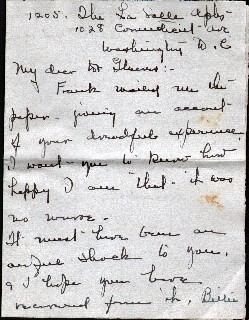 1205. The La Salle Apts
1028 Connecticut Ave
Washington D.C
My dear Mr
Frank mailed me the
paper giving an account
of your dreadful experience.
I want you to know how
happy I am that it was
no worse.
It must have been an
awful shock to you,
& I hope you have
recovered from it, Billie